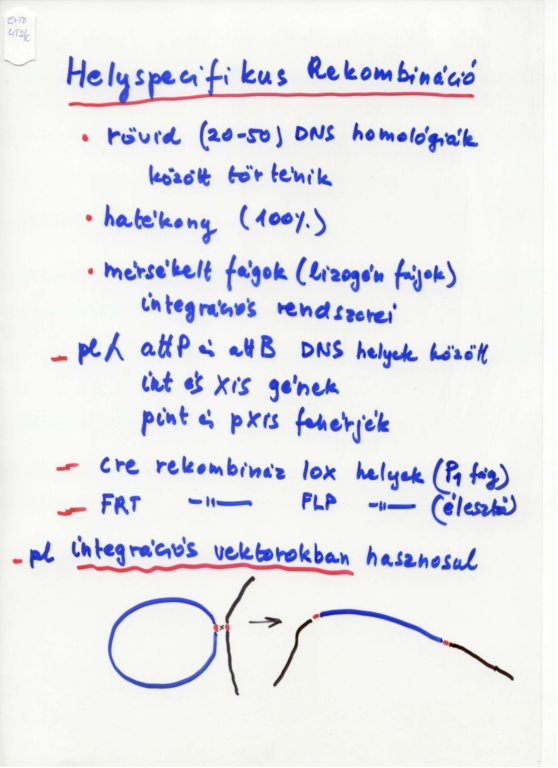 ELTE
4T2/c
Helyspecifikus Rekombináció
• rövid (20-50) DNS homológiák
között történik
• hatékony (100%)
• mérsékelt fágok (lizogén fágok)
integrációs rendszerei
– pl λ attP és attB DNS helyek között
int és xis gének
pint és pxis fehérjék
– cre rekombináz lox helyek (P1 fág)
– FRT –"– FLP –"– (élesztő)
– pl integrációs vektorokban hasznosul